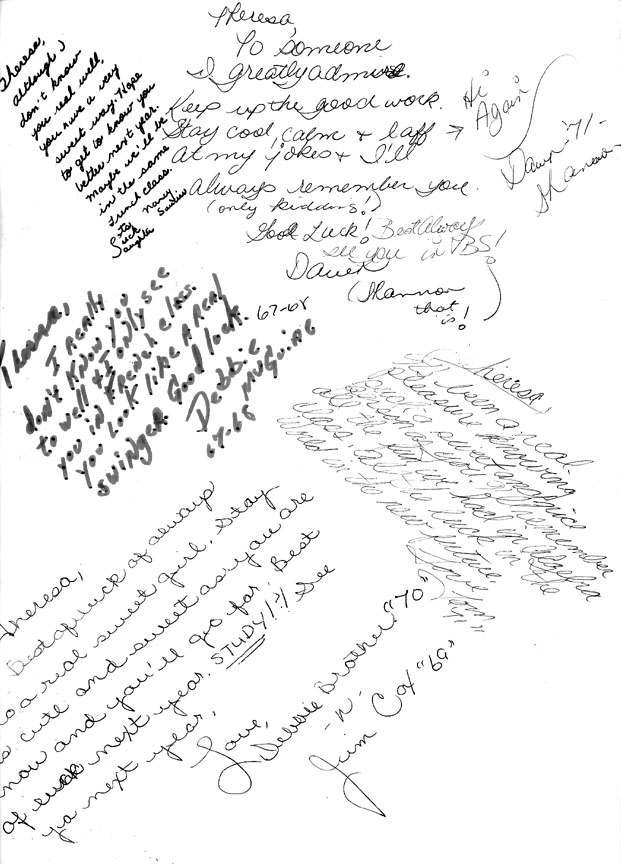 Theresa,
although I
don't know
you real well,
you have a very
sweet way. Hope
to get to know you
better next year.
Maybe we'll be
in the same
French class.
Luck
Nancy
Theresa,
To someone
I greatly admire.
Keep up the good work.
Stay cool, calm & laff →
at my jokes & I'll
always remember you.
(only kidding!)
Good Luck! Best Always
see you in VBS!
(Shannon
that is!)
Hi
Again
Dawn -'71-
Shannon
67-68
Theresa,
I REAlly
don't KNOW you
to well & I only see
you IN FRENCH class.
you LOOK liKE A REAl
SWINGER. Good luck.
Debbie
McGuire
67-68
Theresa,
It's been a real
pleasure knowing
such a sweet and nice
person as you. Remember
all the fun we had in
luck in the
future
Love
Theresa,
Best of luck always
to a real sweet girl. Stay
as cute and sweet as you are
now and you'll go far. Best
of luck next year. STUDY!?! See
ya next year.
Love,
Debbie Brother "70"
-n-
Jim Cox "69"